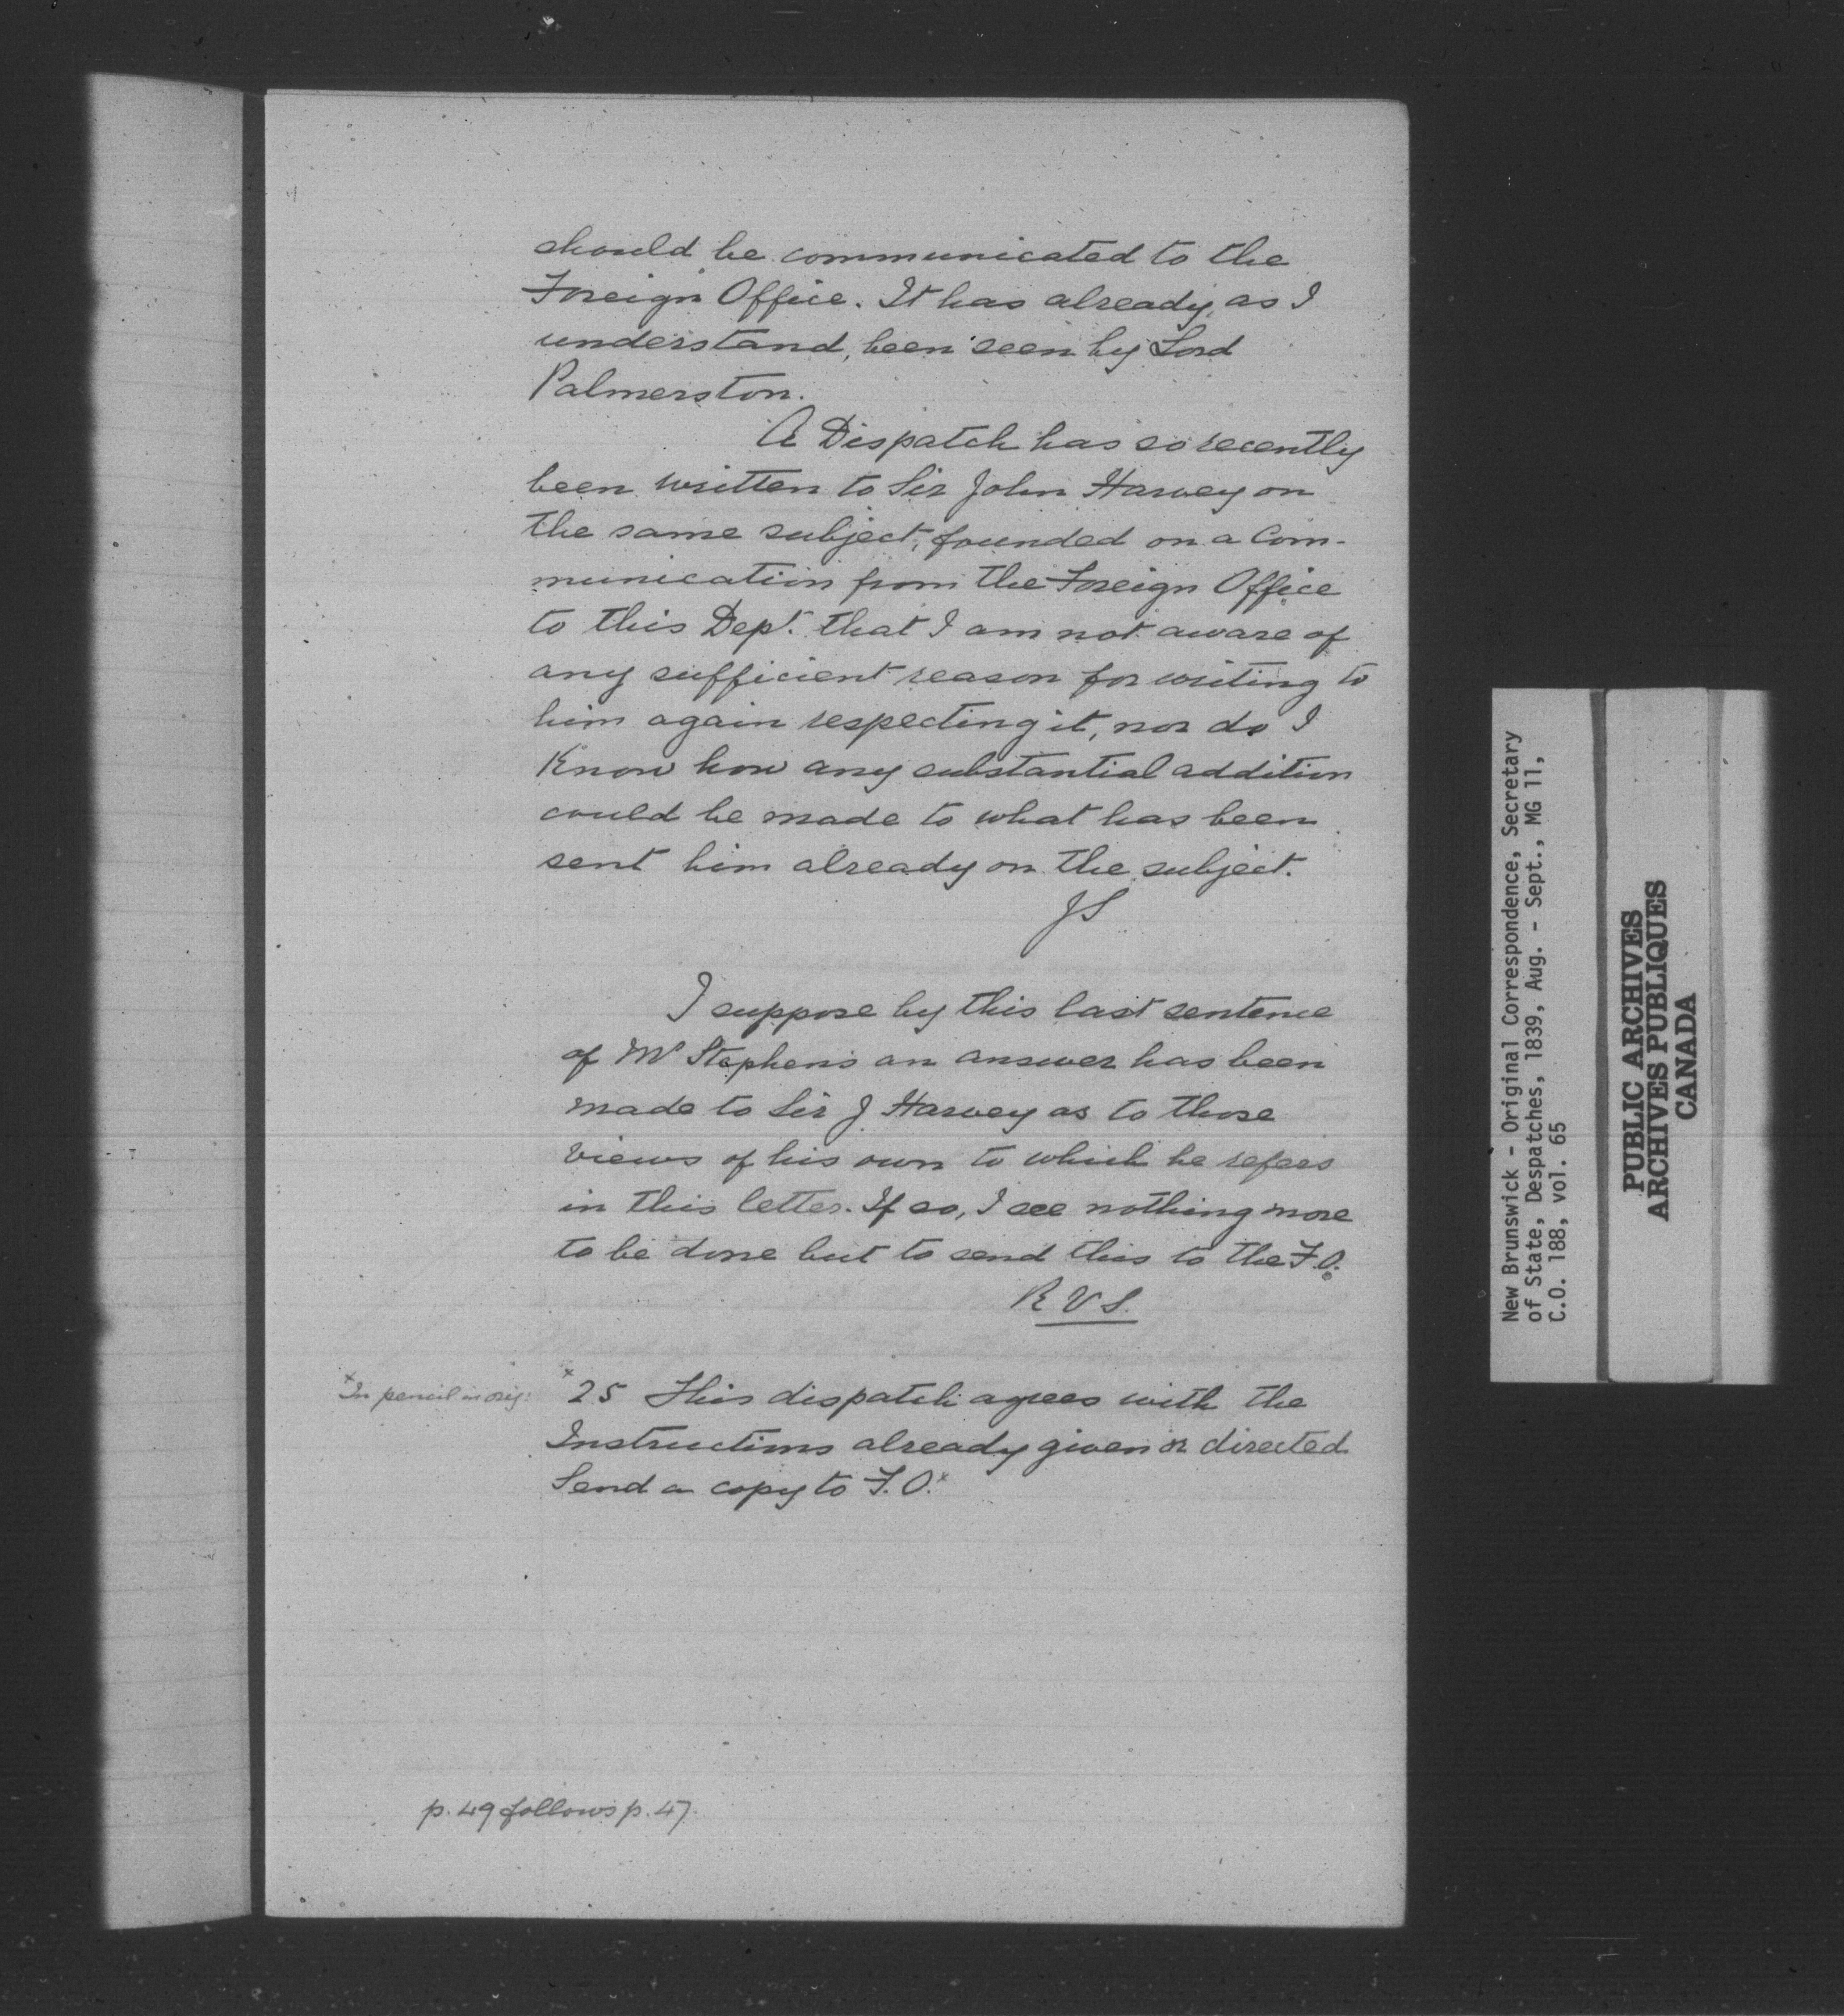 should be communicated to the
Foreign Office. It has already, as I
understand, been seen by Lord
Palmerston.
A Dispatch has so recently
been written to Sir John Harvey on
the same subject, founded on a Com-
munication from the Foreign Office
to this Dept. that I am not aware of
any sufficient reason for writing to
him again respecting it, nor do I
Know how any substantial addition
could be made to what has been
sent him already on the subject.
JS
I suppose by this last sentence
of Mr Stephens an answer has been
made to Sir J Harvey as to those
views of his own to which he refers
in this letter. If so, I see nothing more
to be done but to send this to the F.O.
R V S.
x In pencil in orig:
x 25 This dispatch agrees with the
Instructions already given or directed
Send a copy to F.O. x
p. 49 follows p. 47.
New Brunswick - Original Correspondence, Secretary
of State, Despatches, 1839, Aug. - Sept., MG 11,
C.O. 188, vol. 65
PUBLIC ARCHIVES
ARCHIVES PUBLIQUES
CANADA